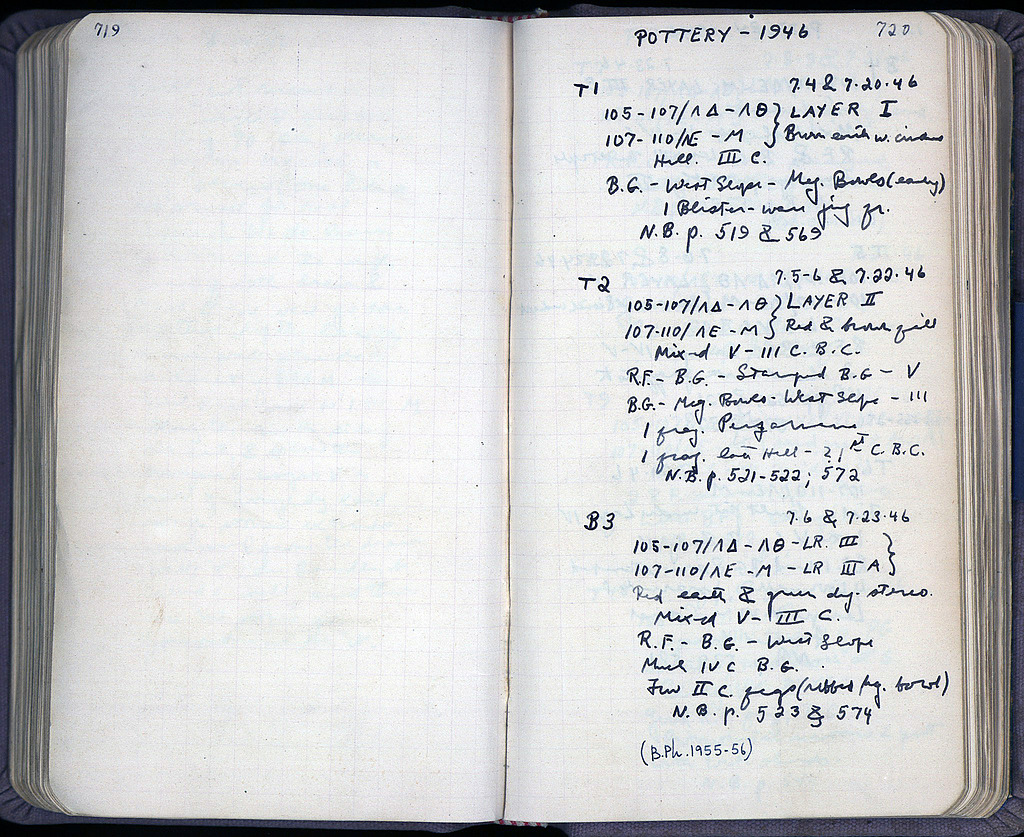 719
POTTERY - 1946 720
T1 7.4 & 7.20.46
105-107/ΛΔ-ΛΘ } LAYER I
107-110/ΛE-M } Brown earth w.
Hell. III C.
B.G. - West Slope - Meg. Bowls (early)
1 Blister-ware jug fr.
N.B. p. 519 & 569
T2 7.5-6 & 7.22.46
105-107/ΛΔ-ΛΘ } LAYER II
107-110/ΛE-M } Red & brown fill
Mixed V-III C. B.C.
R.F. - B.G. - Stamped B.G - V
B.G. - Meg. Bowls - West Slope - III
1 frag. Pergamene
1 frag. late Hell - ? 1st C. B.C.
N.B. p. 521-522; 572
B3 7.6 & 7.23.46
105-107/ΛΔ-ΛΘ-LR. III }
107-110/ΛE-M-LR III A }
Red earth & green dig. stereo.
Mixed V-III C.
R.F. - B.G. - West Slope
Much IV C B.G.
Few II C. frags (ribbed Meg. bowl)
N.B. p. 523 & 574
(B.Ph. 1955-56)